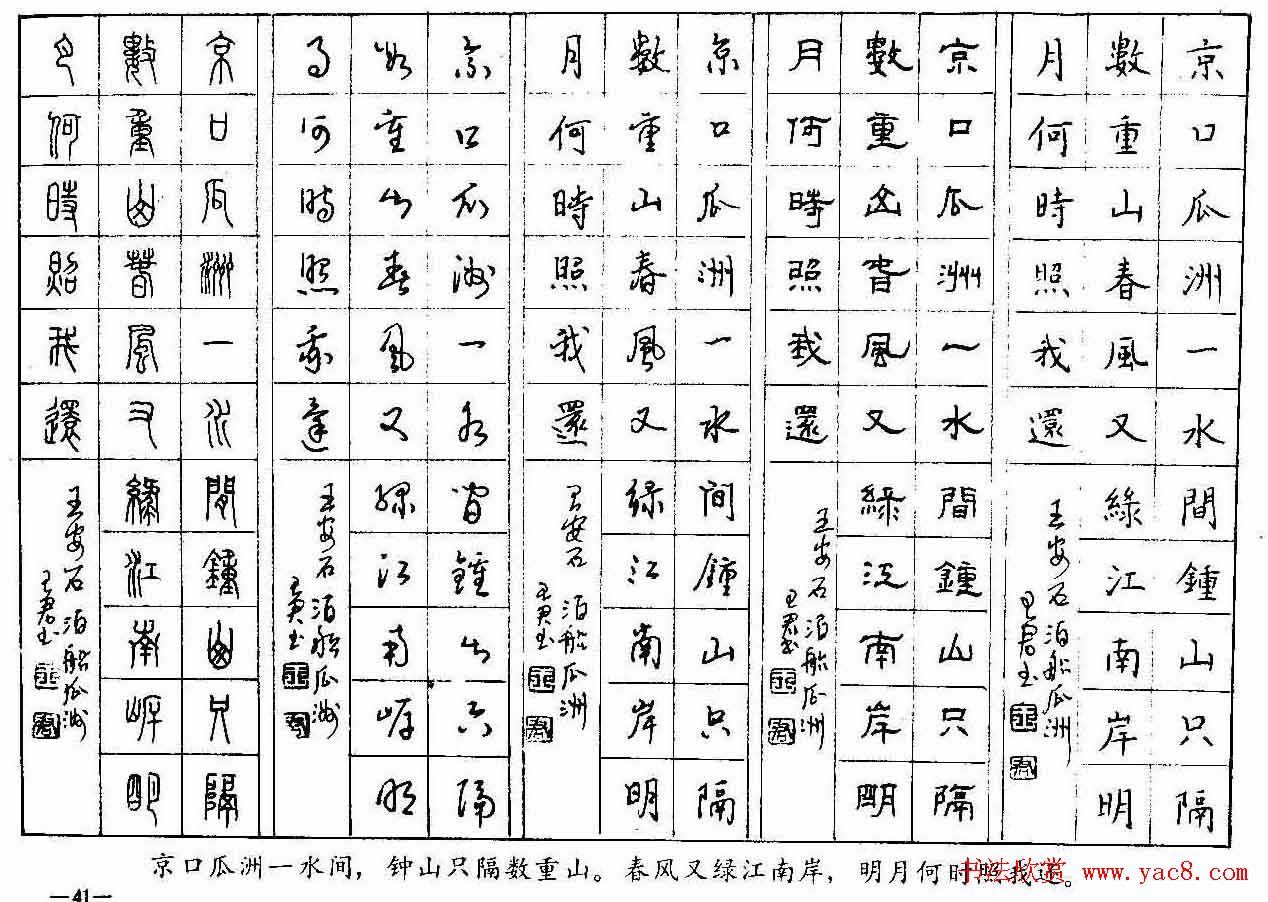 京口瓜洲一水間鍾山只隔
數重山春風又綠江南岸明
月何時照我還
王安石泊船瓜洲
王君书
京口瓜洲一水間鍾山只隔
數重山春風又綠江南岸明
月何時照我還
王安石泊船瓜洲
王君书
京口瓜洲一水间鍾山只隔
數重山春風又绿江南岸明
月何時照我還
王安石 泊船瓜洲
王君书
京口瓜洲一水間鍾山只隔
數重山春風又綠江南岸明
月何時照我還
王安石泊船瓜洲
王君书
京口瓜洲一水間鍾山只隔
數重山春風又綠江南岸明
月何時照我還
王安石泊船瓜洲
王君书
京口瓜洲一水间，钟山只隔数重山。春风又绿江南岸，明月何时照我还。
书法欣赏 www.yac8.com
—41—